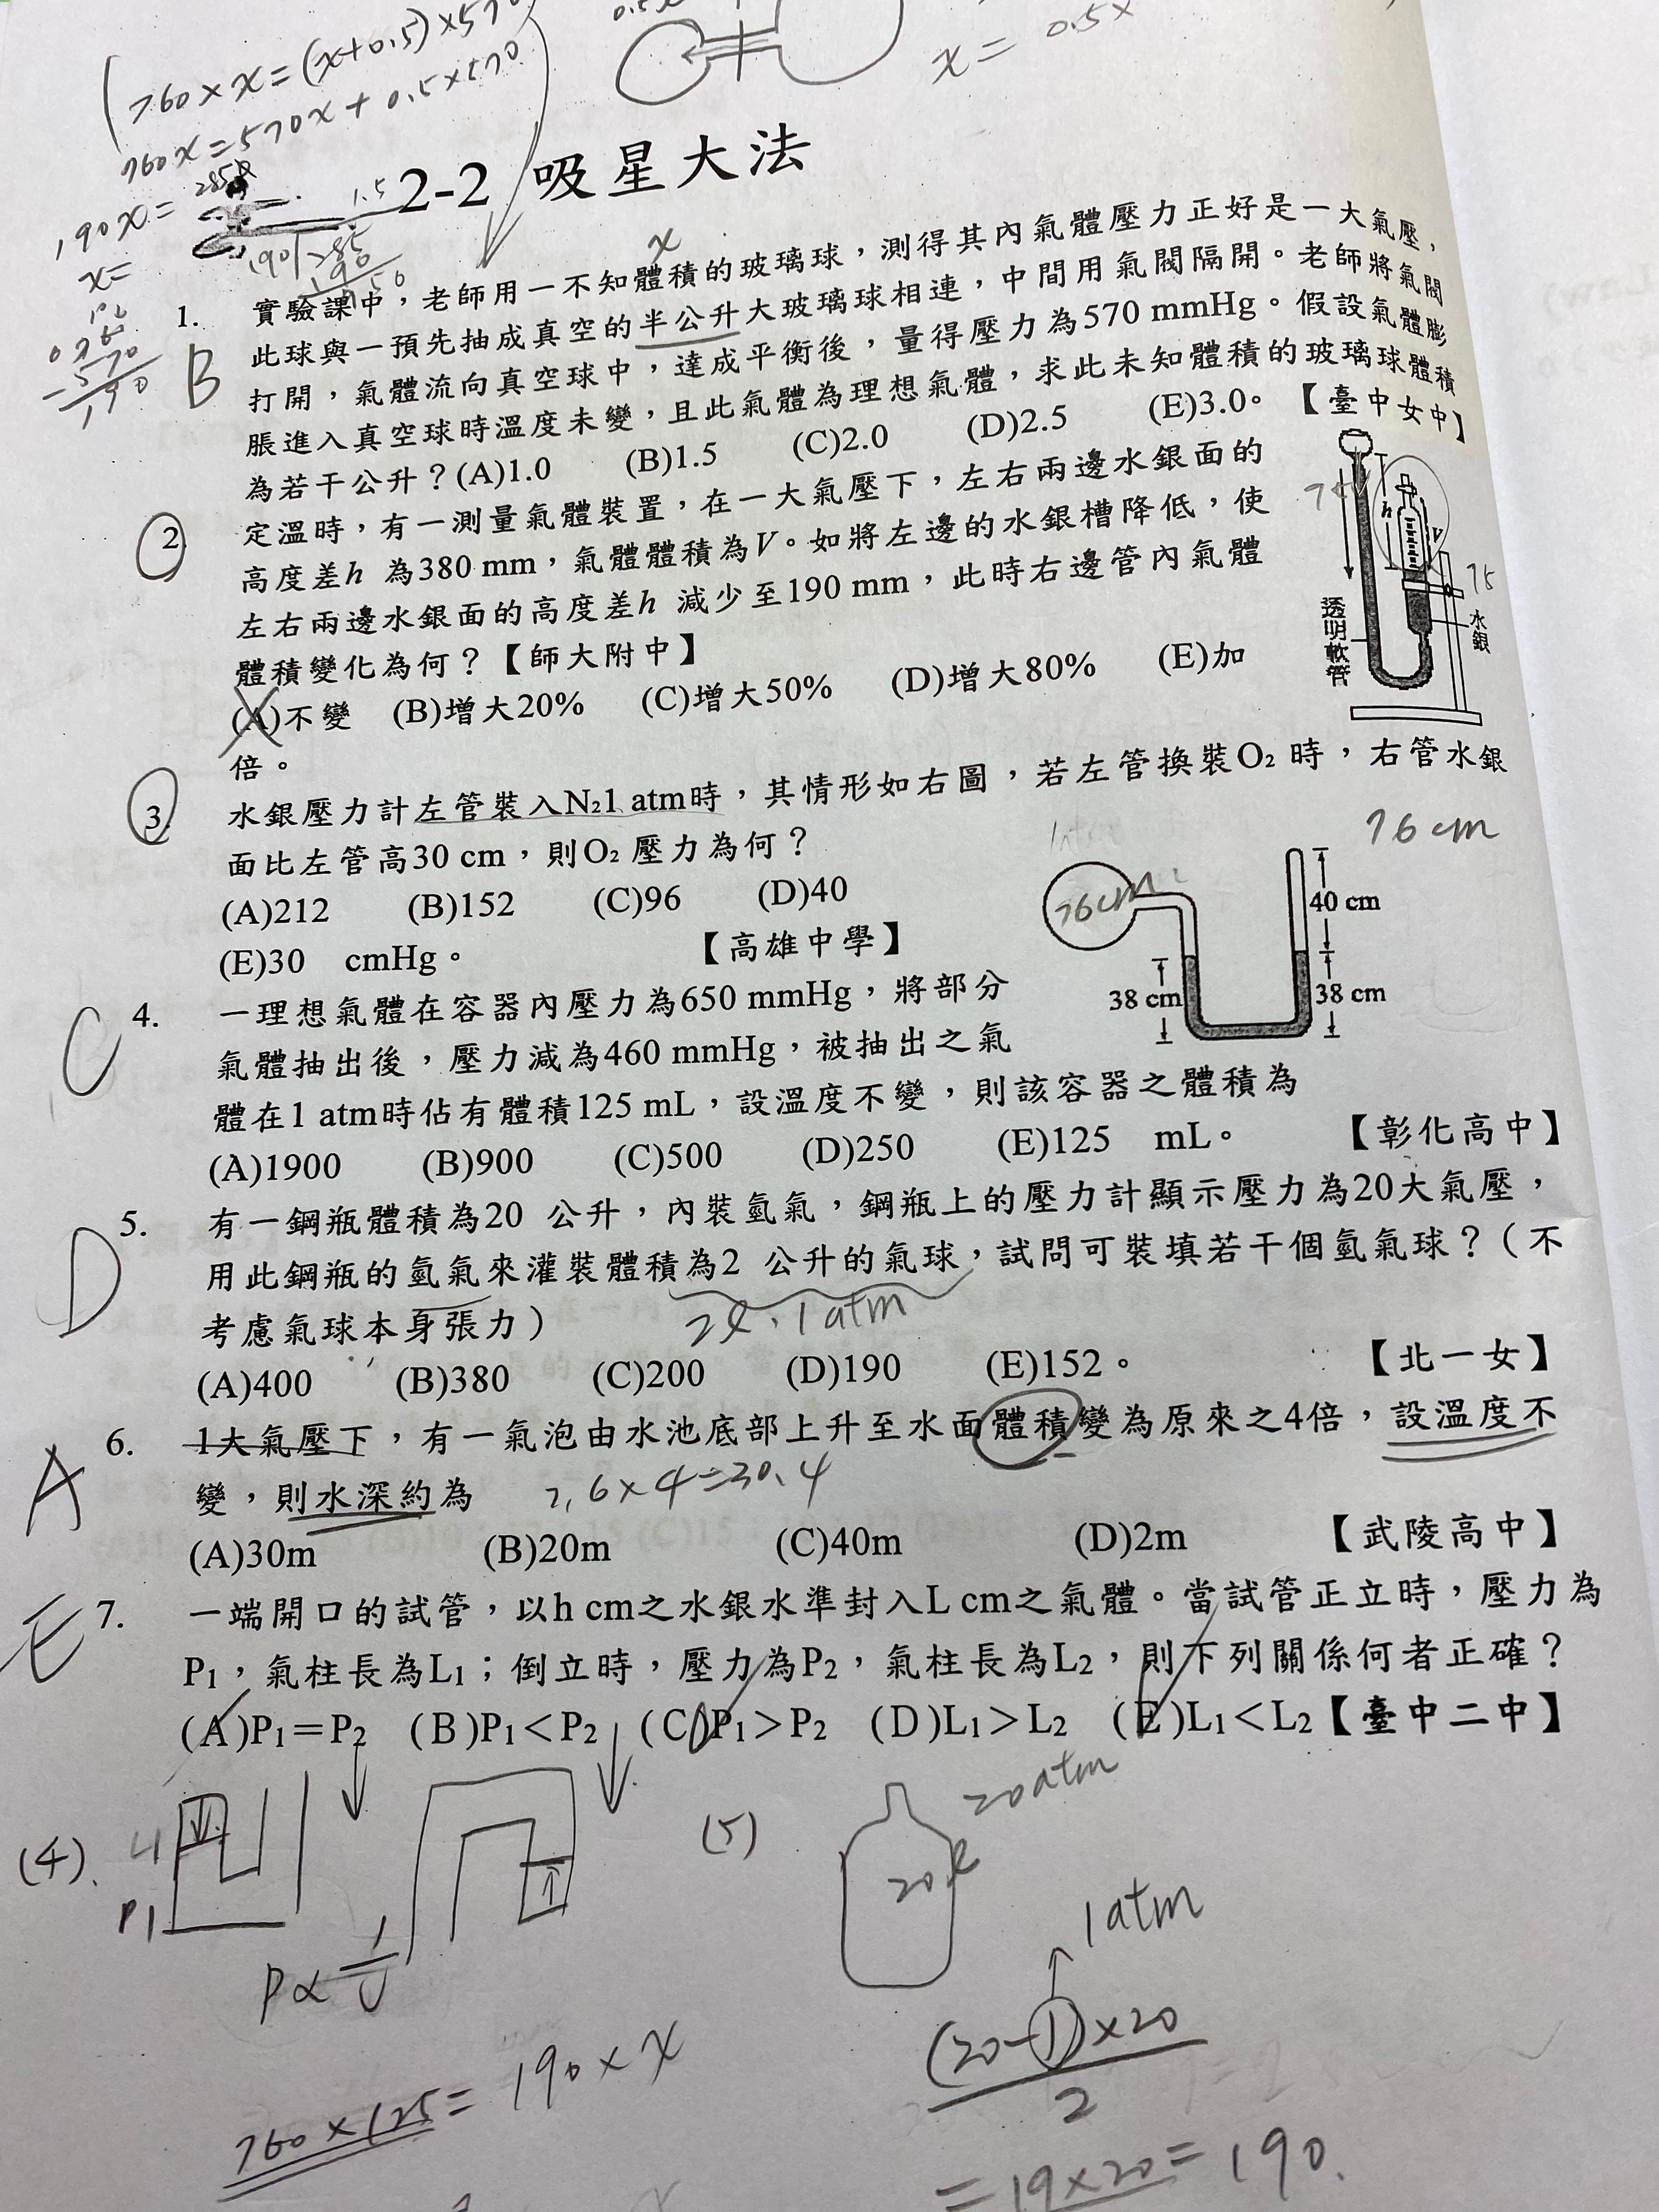 0.5x
760×x=(x+0.5)×570
x= 0.5x
760x=570x+0.5×570
190x=285
x=
1.5
190
2-2 吸星大法
x
1. 實驗課中，老師用一不知體積的玻璃球，測得其內氣體壓力正好是一大氣壓，
此球與一預先抽成真空的半公升大玻璃球相連，中間用氣閥隔開。老師將氣閥
B
打開，氣體流向真空球中，達成平衡後，量得壓力為570 mmHg。假設氣體膨
脹進入真空球時溫度未變，且此氣體為理想氣體，求此未知體積的玻璃球體積
為若干公升？(A)1.0 (B)1.5 (C)2.0 (D)2.5 (E)3.0。【臺中女中】
2. 定溫時，有一測量氣體裝置，在一大氣壓下，左右兩邊水銀面的
高度差h 為380 mm，氣體體積為V。如將左邊的水銀槽降低，使
左右兩邊水銀面的高度差h 減少至190 mm，此時右邊管內氣體
體積變化為何？【師大附中】
(A)不變 (B)增大20% (C)增大50% (D)增大80% (E)加
倍。
h
V
透明軟管
水銀
3. 水銀壓力計左管裝入N₂1 atm時，其情形如右圖，若左管換裝O₂時，右管水銀
面比左管高30 cm，則O₂壓力為何？
76 cm
(A)212 (B)152 (C)96 (D)40
(E)30 cmHg。 【高雄中學】
76cm
40 cm
38 cm
38 cm
C
4. 一理想氣體在容器內壓力為650 mmHg，將部分
氣體抽出後，壓力減為460 mmHg，被抽出之氣
體在1 atm時佔有體積125 mL，設溫度不變，則該容器之體積為
(A)1900 (B)900 (C)500 (D)250 (E)125 mL。 【彰化高中】
D
5. 有一鋼瓶體積為20 公升，內裝氫氣，鋼瓶上的壓力計顯示壓力為20大氣壓，
用此鋼瓶的氫氣來灌裝體積為2 公升的氣球，試問可裝填若干個氫氣球？（不
考慮氣球本身張力）
2ℓ.1atm
(A)400 (B)380 (C)200 (D)190 (E)152。 【北一女】
A
6. 1大氣壓下，有一氣泡由水池底部上升至水面體積變為原來之4倍，設溫度不
變，則水深約為
7.6×4=30.4
(A)30m (B)20m (C)40m (D)2m 【武陵高中】
E
7. 一端開口的試管，以h cm之水銀水準封入L cm之氣體。當試管正立時，壓力為
P₁，氣柱長為L₁；倒立時，壓力為P₂，氣柱長為L₂，則下列關係何者正確？
(A)P₁=P₂ (B)P₁<P₂ (C)P₁>P₂ (D)L₁>L₂ (E)L₁<L₂【臺中二中】
(4).
P1
(5)
20atm
20ℓ
1atm
P∝1/V
(20-1)×20
2
760×125=190×x
=19×20=190.